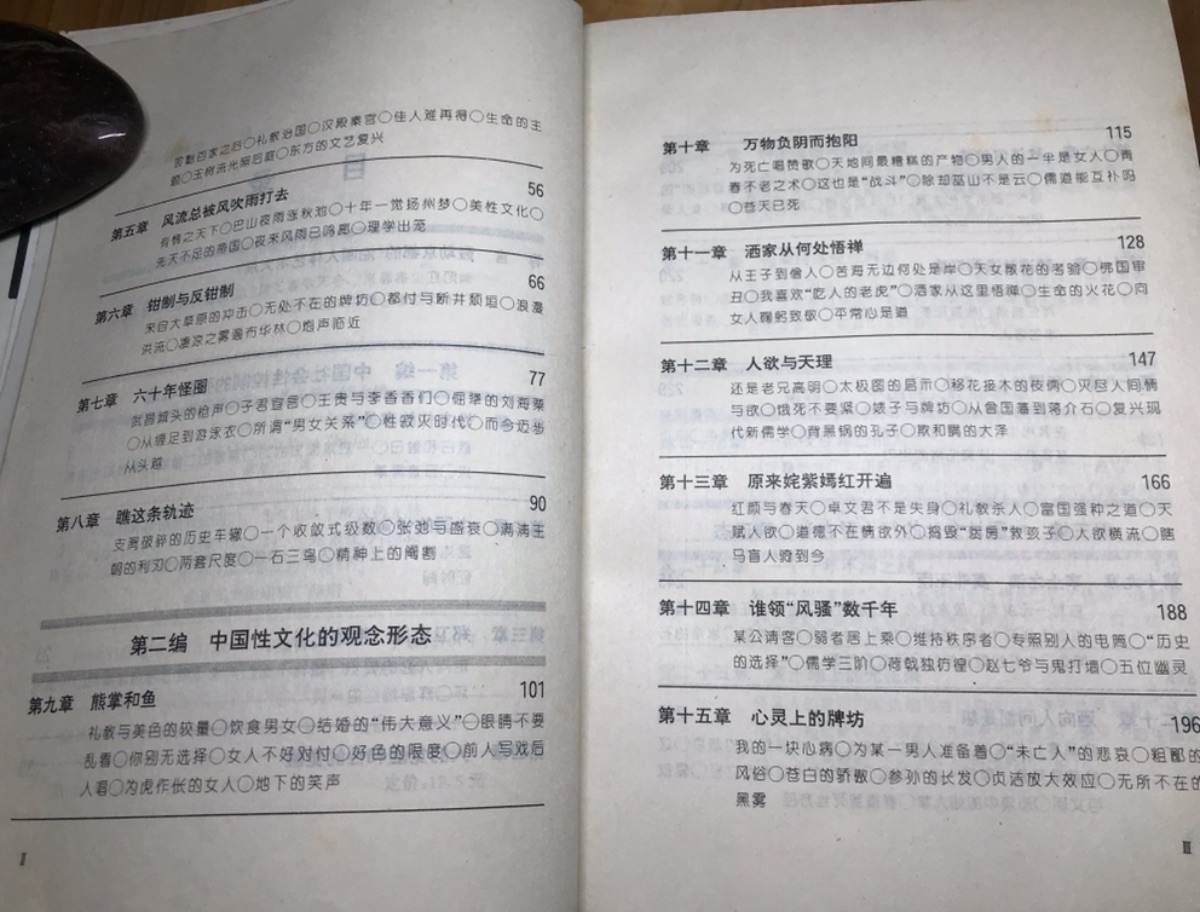 罢黜百家之后○礼教治国○汉殿秦宫○佳人难再得○生命的主
题○玉树流光照后庭○东方的文艺复兴
第五章 风流总被风吹雨打去 56
有情之天下○巴山夜雨涨秋池○十年一觉扬州梦○美性文化○
先天不足的帝国○夜来风雨已鸣鹿○理学出笼
第六章 钳制与反钳制 66
来自大草原的冲击○无处不在的牌坊○都付与断井颓垣○浪漫
洪流○凄凉之雾遍布华林○炮声临近
第七章 六十年怪圈 77
武昌城头的枪声○子君宣言○王贵与李香香们○倔犟的刘海粟
○从缠足到游泳衣○所谓“男女关系”○性寂灭时代○而今迈步
从头越
第八章 瞧这条轨迹 90
支离破碎的历史车辙○一个收敛式级数○张弛与盛衰○满清王
朝的利刃○两套尺度○一石三鸟○精神上的阉割
第二编 中国性文化的观念形态
第九章 熊掌和鱼 101
礼教与美色的较量○饮食男女○结婚的“伟大意义”○眼睛不要
乱看○你别无选择○女人不好对付○好色的限度○前人写戏后
人唱○为虎作伥的女人○地下的笑声
定价:12.5元
Ⅱ
第十章 万物负阴而抱阳 115
为死亡唱赞歌○天地间最糟糕的产物○男人的一半是女人○青
春不老之术○这也是“战斗”○除却巫山不是云○儒道能互补吗
○苍天已死
第十一章 洒家从何处悟禅 128
从王子到僧人○苦海无边何处是岸○天女散花的考验○佛国审
丑○我喜欢“吃人的老虎”○洒家从这里悟禅○生命的火花○向
女人鞠躬致敬○平常心是道
第十二章 人欲与天理 147
还是老兄高明○太极图的启示○移花接木的伎俩○灭尽人间情
与欲○饿死不要紧○婊子与牌坊○从曾国藩到蒋介石○复兴现
代新儒学○背黑锅的孔子○欺和瞒的大泽
第十三章 原来姹紫嫣红开遍 166
红颜与春天○卓文君不是失身○礼教杀人○富国强种之道○天
赋人欲○道德不在情欲外○捣毁“厨房”救孩子○人欲横流○瞎
马盲人骑到今
第十四章 谁领“风骚”数千年 188
某公请客○弱者居上乘○维持秩序者○专照别人的电筒○“历史
的选择”○儒学三阶○荷戟独彷徨○赵七爷与鬼打墙○五位幽灵
第十五章 心灵上的牌坊 196
我的一块心病○为某一男人准备着○“未亡人”的悲哀○粗鄙的
风俗○苍白的骄傲○参孙的长发○贞洁放大效应○无所不在的
黑雾
Ⅲ